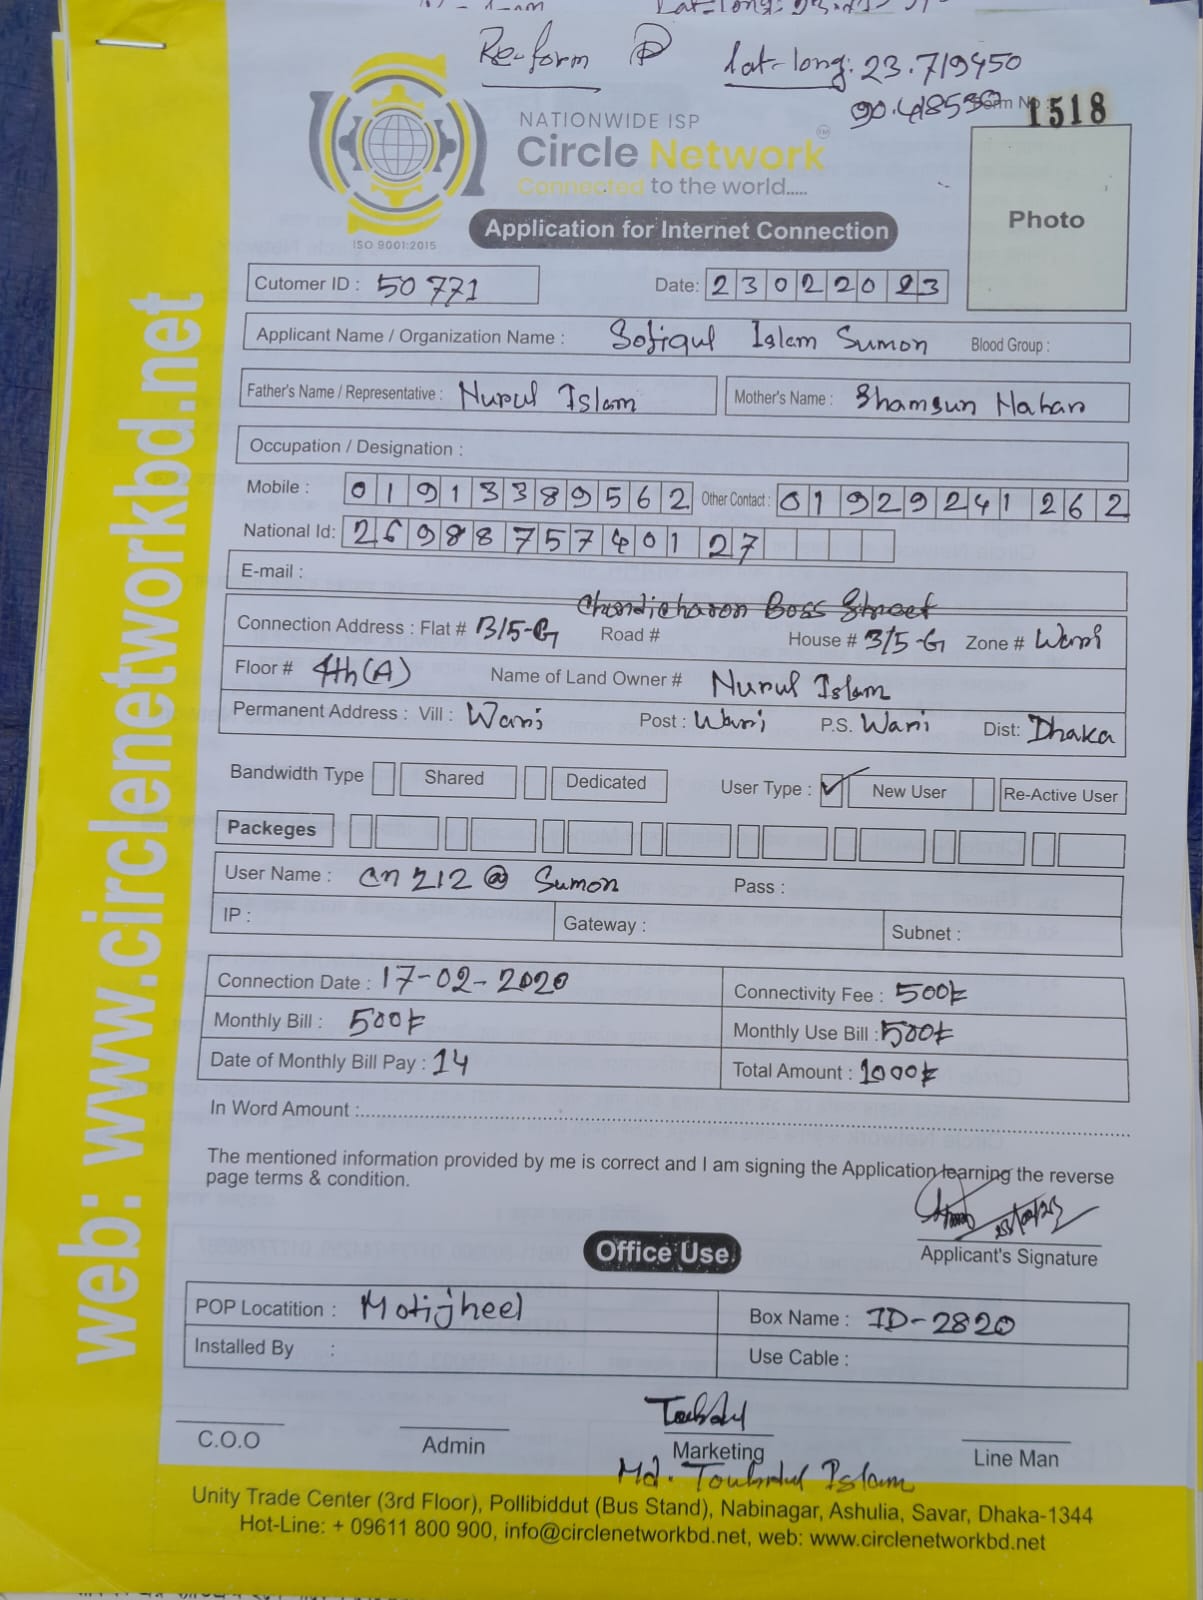 Re-form
lat-long: 23.719450
90.418530
Form No : 1518
NATIONWIDE ISP
Circle Network TM
Connected to the world.....
ISO 9001:2015
Application for Internet Connection
Photo
Cutomer ID : 50771
Date: 23022023
Applicant Name / Organization Name : Sofiqul Islam Sumon Blood Group :
Father's Name / Representative : Nurul Islam Mother's Name : Shamsun Nahar
Occupation / Designation :
Mobile : 01913389562 Other Contact : 01929241262
National Id: 2698875740127
E-mail :
Chandicharon Boss Street
Connection Address : Flat # B/5-G Road # House # 3/5-G Zone # Wari
Floor # 4th(A) Name of Land Owner # Nurul Islam
Permanent Address : Vill : Wari Post : Wari P.S. Wari Dist: Dhaka
Bandwidth Type Shared Dedicated User Type : ✓ New User Re-Active User
Packeges
User Name : cn212@Sumon Pass :
IP : Gateway : Subnet :
Connection Date : 17-02-2020 Connectivity Fee : 500৳
Monthly Bill : 500৳ Monthly Use Bill : 500৳
Date of Monthly Bill Pay : 14 Total Amount : 1000৳
In Word Amount :
The mentioned information provided by me is correct and I am signing the Application learning the reverse
page terms & condition.
Applicant's Signature
Office Use
POP Locatition : Motijheel Box Name : ID-2820
Installed By : Use Cable :
C.O.O Admin Marketing Line Man
Md. Touhidul Islam
Unity Trade Center (3rd Floor), Pollibiddut (Bus Stand), Nabinagar, Ashulia, Savar, Dhaka-1344
Hot-Line: + 09611 800 900, info@circlenetworkbd.net, web: www.circlenetworkbd.net
web: www.circlenetworkbd.net